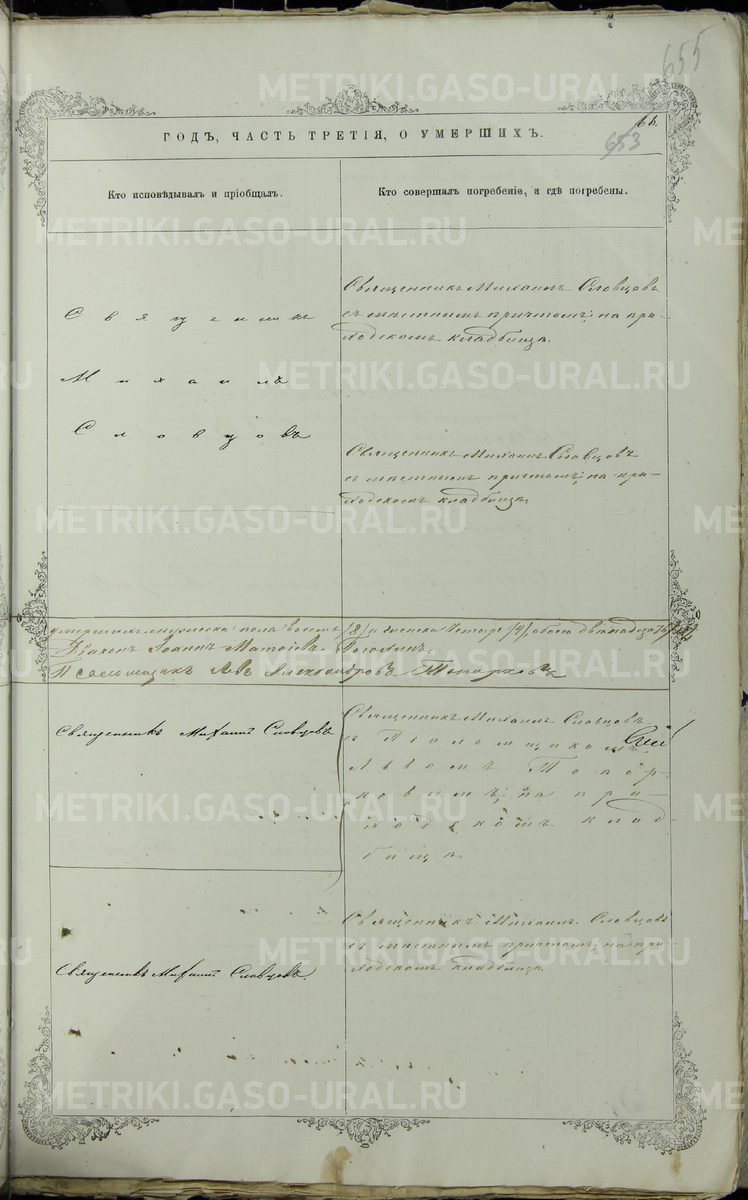 655
66.
653
ГОДЪ, ЧАСТЬ ТРЕТІЯ, О УМЕРШИХЪ.
Кто исповѣдывалъ и пріобщалъ.
Кто совершалъ погребеніе, и гдѣ погребены.
Священникъ
Михаилъ
Словцовъ
Священникъ Михаилъ Словцовъ
съ мѣстнымъ причтомъ; на при-
ходскомъ кладбищѣ.
Священникъ Михаилъ Словцовъ
съ мѣстнымъ причтомъ; на при-
ходскомъ кладбищѣ.
умершихъ мужеска пола восемь /8/ и женска четыре /4/, обоего двѣнадцать /12/
Діаконъ Іоаннъ
Псаломщикъ Левъ Александровъ Топорковъ
Священникъ Михаилъ Словцовъ
Священникъ Михаилъ Словцовъ
съ Псаломщикомъ
Львомъ Топор-
ковымъ; на при-
ходскомъ клад-
бищѣ
Священникъ Михаилъ Словцовъ.
Священникъ Михаилъ Словцовъ
съ мѣстнымъ причтомъ; на при-
ходскомъ кладбищѣ.
METRIKI.GASO-URAL.RU